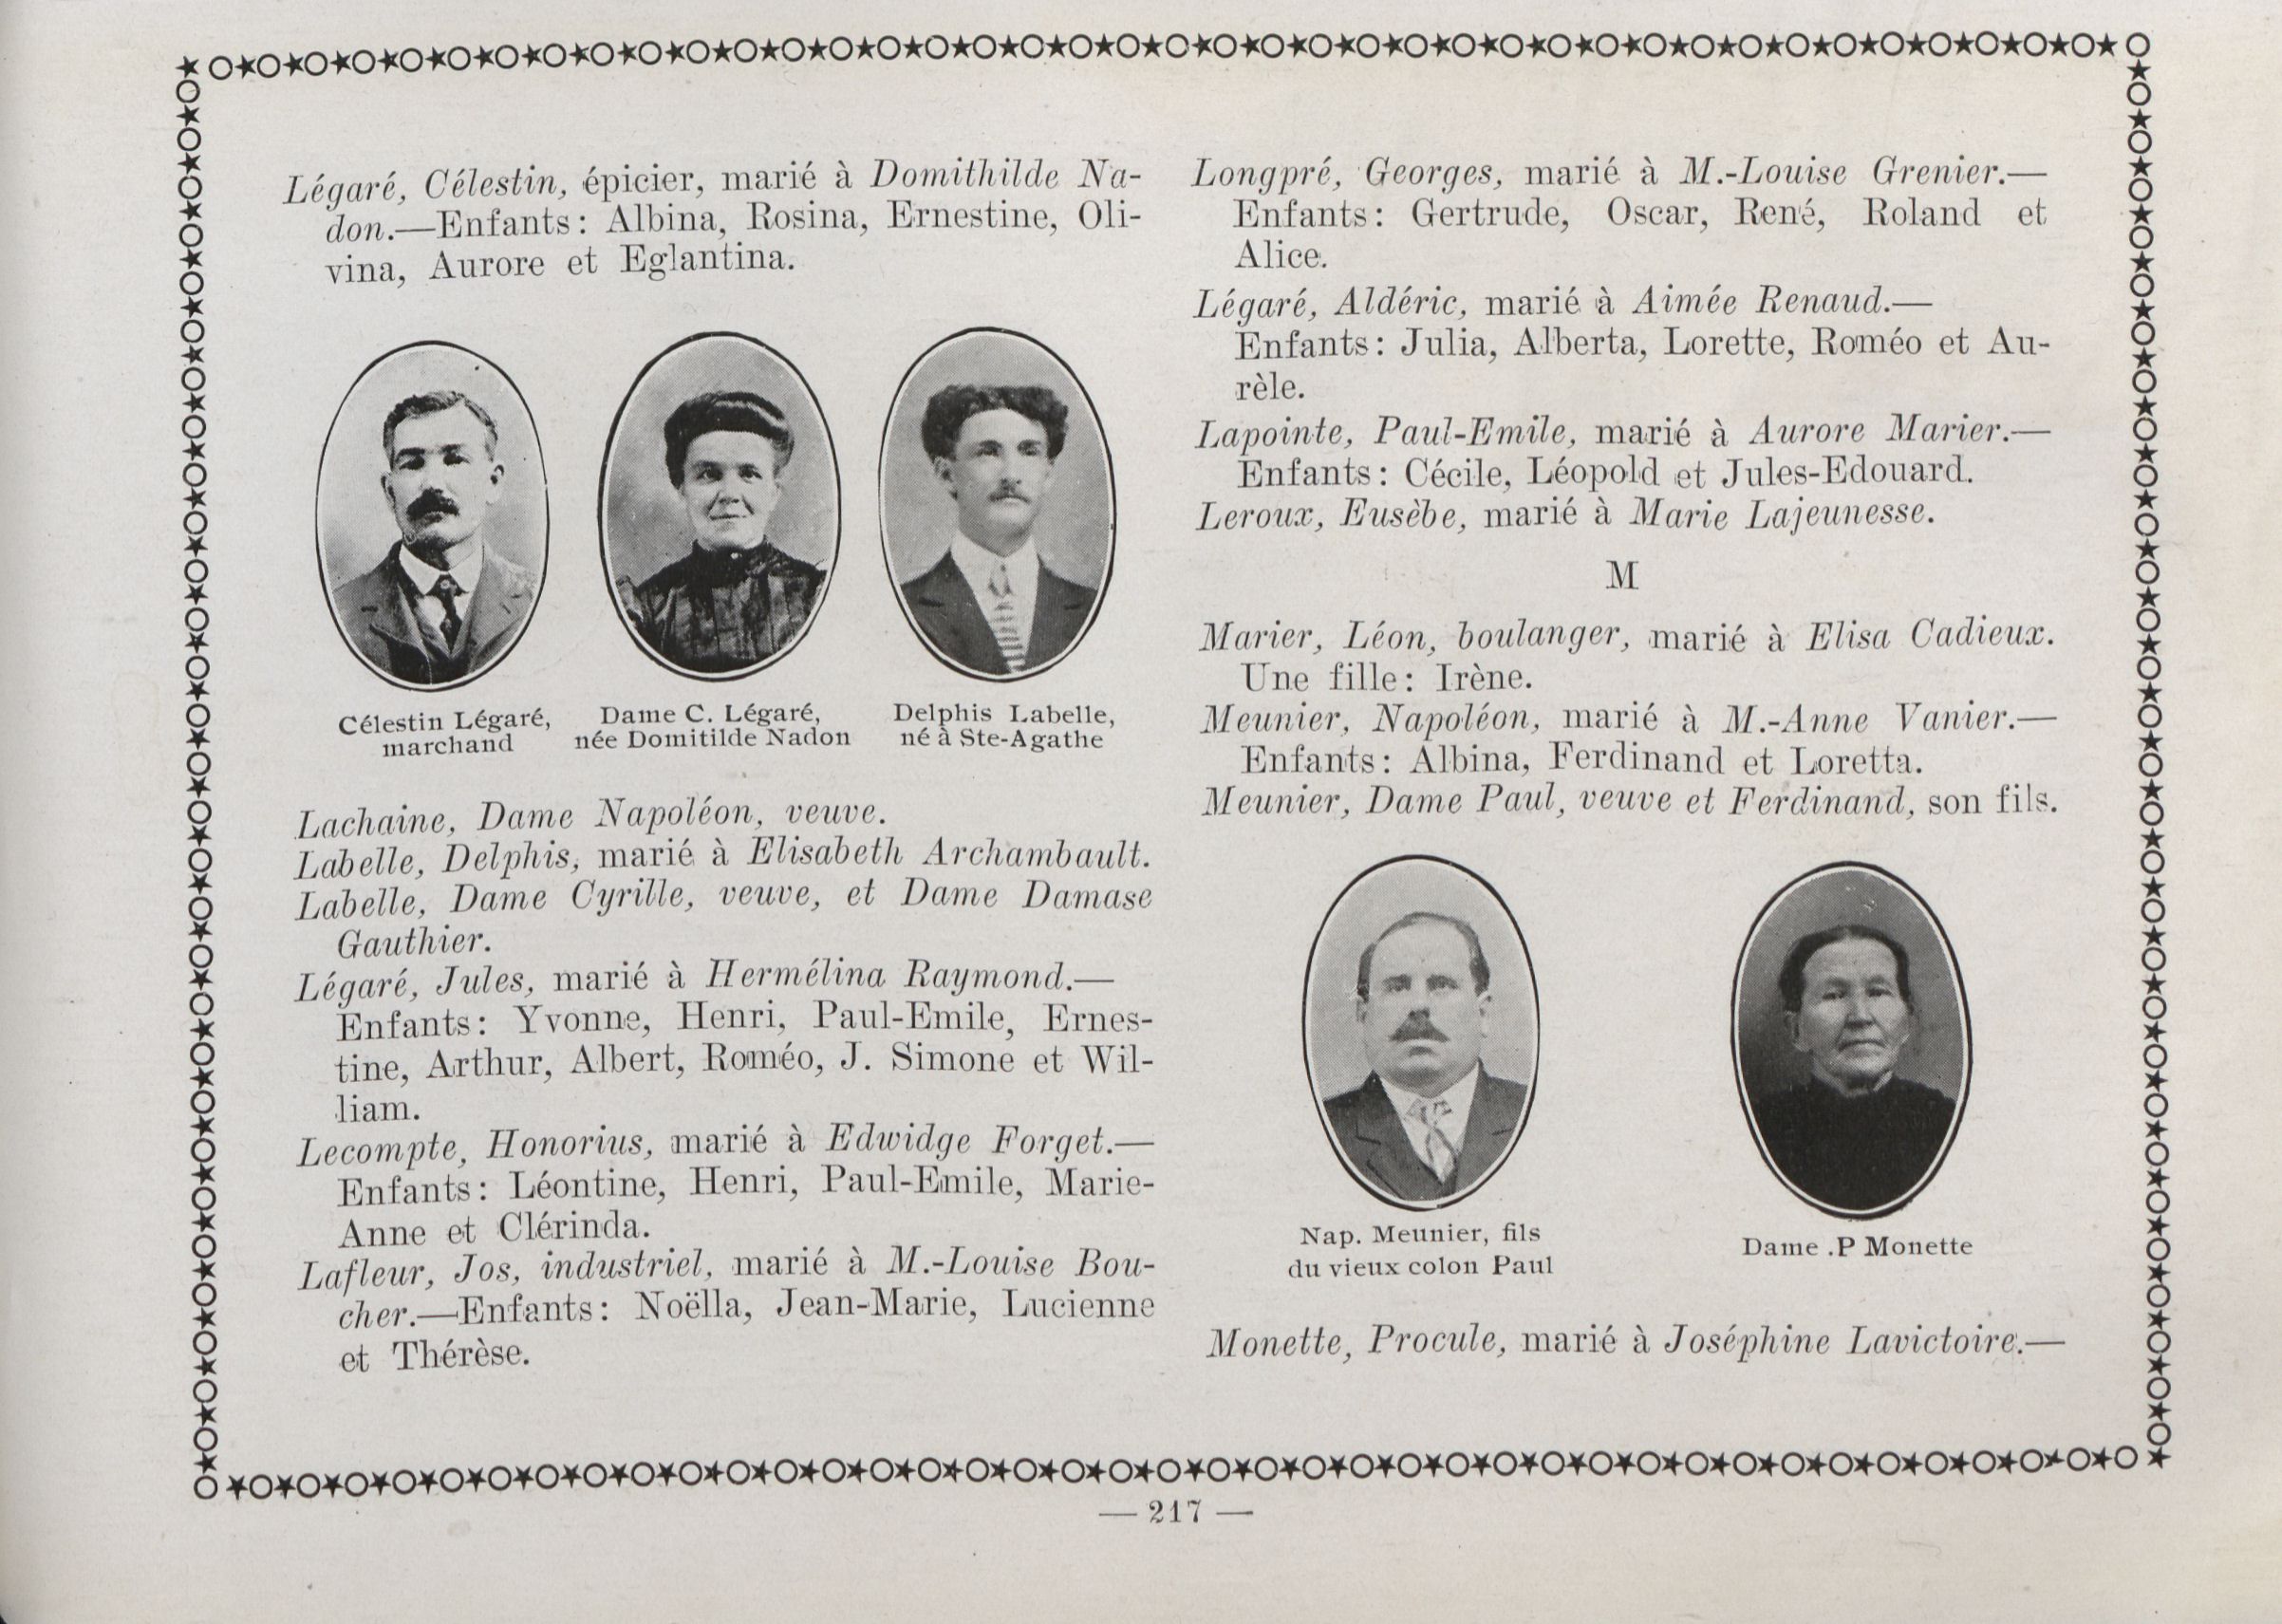 Légaré, Célestin, épicier, marié à Domithilde Na-
don.—Enfants: Albina, Rosina, Ernestine, Oli-
vina, Aurore et Eglantina.
Célestin Légaré,
marchand
Dame C. Légaré,
née Domitilde Nadon
Delphis Labelle,
né à Ste-Agathe
Lachaine, Dame Napoléon, veuve.
Labelle, Delphis, marié à Elisabeth Archambault.
Labelle, Dame Cyrille, veuve, et Dame Damase
Gauthier.
Légaré, Jules, marié à Hermélina Raymond.—
Enfants: Yvonne, Henri, Paul-Emile, Ernes-
tine, Arthur, Albert, Roméo, J. Simone et Wil-
liam.
Lecompte, Honorius, marié à Edwidge Forget.—
Enfants: Léontine, Henri, Paul-Emile, Marie-
Anne et Clérinda.
Lafleur, Jos, industriel, marié à M.-Louise Bou-
cher.—Enfants: Noëlla, Jean-Marie, Lucienne
et Thérèse.
Longpré, Georges, marié à M.-Louise Grenier.—
Enfants: Gertrude, Oscar, René, Roland et
Alice.
Légaré, Aldéric, marié à Aimée Renaud.—
Enfants: Julia, Alberta, Lorette, Roméo et Au-
rèle.
Lapointe, Paul-Emile, marié à Aurore Marier.—
Enfants: Cécile, Léopold et Jules-Edouard.
Leroux, Eusèbe, marié à Marie Lajeunesse.
M
Marier, Léon, boulanger, marié à Elisa Cadieux.
Une fille: Irène.
Meunier, Napoléon, marié à M.-Anne Vanier.—
Enfants: Albina, Ferdinand et Loretta.
Meunier, Dame Paul, veuve et Ferdinand, son fils.
Nap. Meunier, fils
du vieux colon Paul
Dame .P Monette
Monette, Procule, marié à Joséphine Lavictoire.—
— 217 —